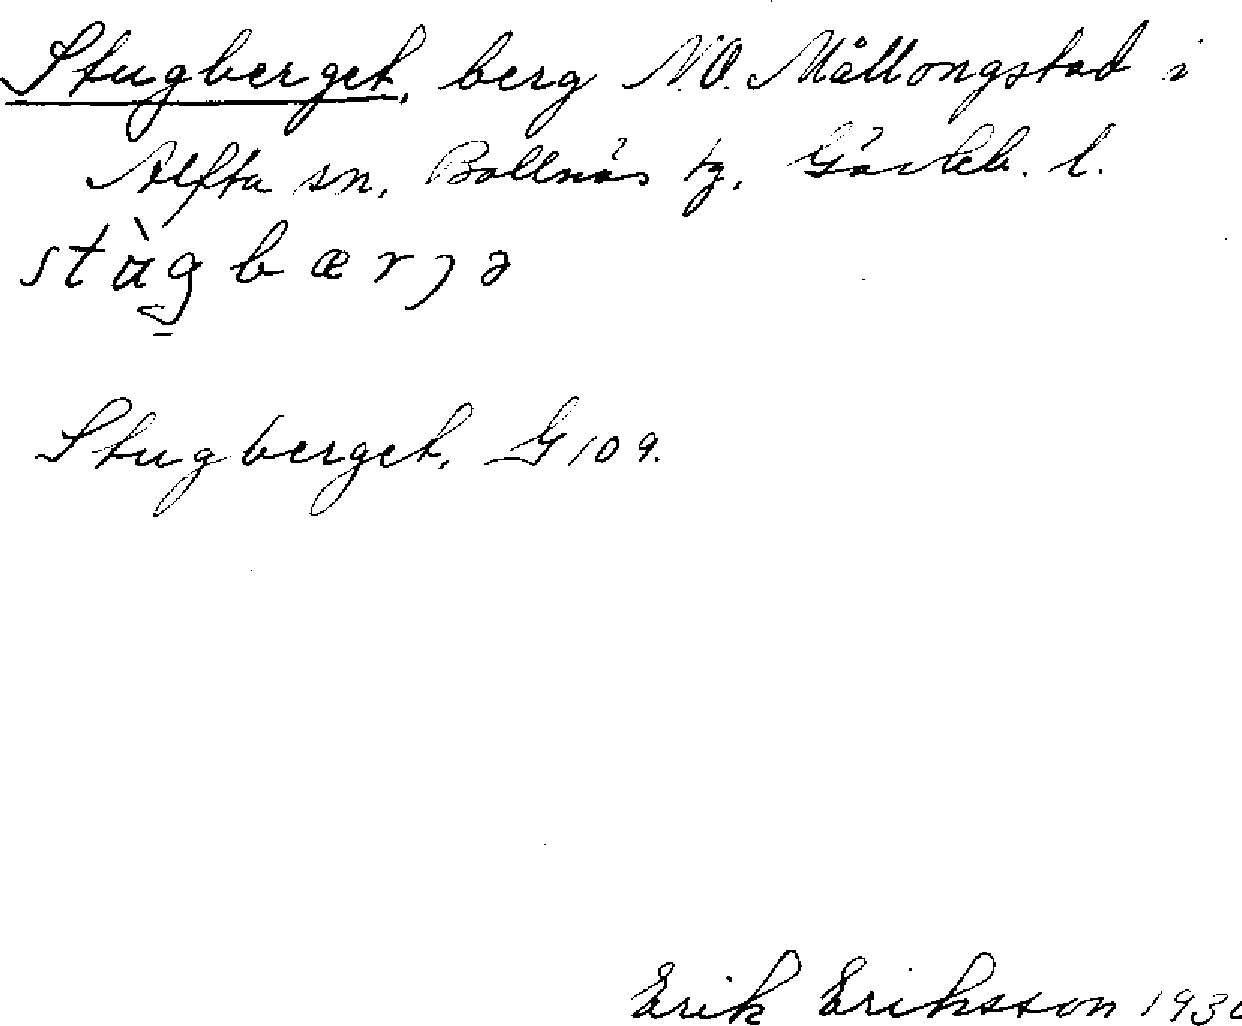 Stugberget, berg N.O. Mållongstad i
Alfta sn, Bollnäs tg, Gävleb. l.
stu̇̀gbærjə
Stugberget, G 109.
Erik Eriksson 193